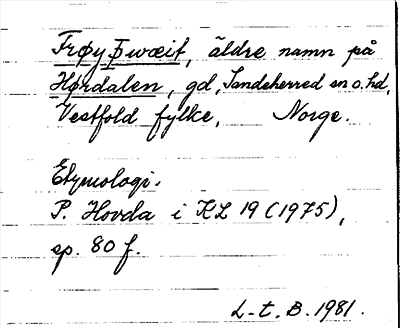 Frøyþwæit, äldre namn på
Hørdalen, gd, Sandeherred sn o. hd,
Vestfold fylke, Norge.
Etymologi.
P. Hovda i KL 19 (1975),
sp. 80 f.
L-t. B. 1981.